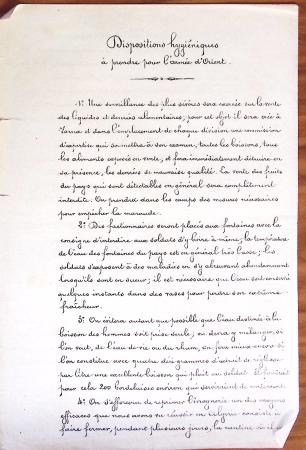 Dispositions hygiéniques
à prendre pour l'armée d'Orient.
1.° Une surveillance des plus sévères sera exercée sur la vente
des liquides et denrées alimentaires; pour cet objet il sera créé à
Varna et dans l'emplacement de chaque division une commission
d'expertise qui soumettra à son examen, toutes les boissons, tous
les aliments exposés en vente, et fera immédiatement détruire en
sa présence, les denrées de mauvaise qualité. La vente des fruits
du pays qui sont détestables en général sera complètement
interdite. On prendra dans les camps des mesures nécessaires
pour empêcher la maraude.
2.° Des factionnaires seront placés aux fontaines avec la
consigne d'interdire aux soldats d'y boire à même; la température
de l'eau des fontaines du pays est en général très basse; les
soldats s'exposent à des maladies en s'y abreuvant abondamment
lorsqu'ils sont en sueur; il est nécessaire que l'eau soit
quelques instants dans des vases pour perdre son extrême
fraîcheur.
3.° On évitera autant que possible que l'eau destinée à la
boisson des hommes soit prise seule; on devra y mélanger, si
l'on veut, de l'eau-de-vie ou du rhum, on fera mieux encore si
l'on constitue avec quatre dix grammes d'extrait de réglisse
par litre une excellente boisson qui plaît au soldat. Il faudrait
pour cela 200 bordelaises environ qui serviraient de
4.° On s'efforcera de réprimer l'ivrognerie un des moyens
efficaces que nous avons vu réussir en Algérie consiste à
faire fermer, pendant plusieurs jours, la cantine où il